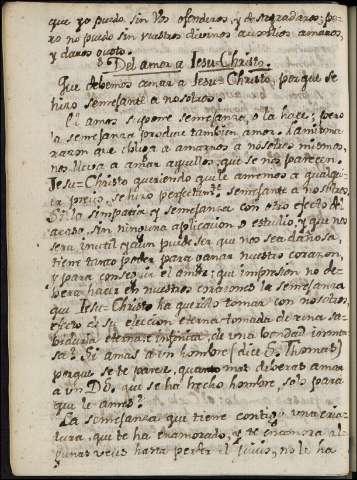 que yo puedo sin Vos ofenderos, y desagradaros; pe-
ro no puedo sin vuestros divinos auxilios amaros,
y daros gusto.
Del amor a Jesu-Christo.
Que debemos amar a Jesu-Christo, porque se
hizo semejante a nosotros.
El amor supone semejanza, o la hace; pero
la semejanza produce tambien amor. La misma
razon que obliga a amarnos a nosotros mismos,
nos lleva a amar aquellos, que se nos parecen.
Jesu-Christo queriendo que le amemos a qualqui-
er precio, se hizo perfectam.te semejante a nosotros.
Si la simpatia, y semejanza con otro efecto del
acaso, sin ninguna aplicacion o estudio, y que nos
sera inutil, y aun puede ser que nos sea dañosa,
tiene tanto poder para ganar nuestro corazon,
y para conseguir el amor; que impresion no de-
bera hacer en nuestros corazones la semejanza
que Jesu-Christo ha querido tomar con nosotros,
efecto de su eleccion eterna tomada de una sa-
biduria eterna e infinita, de una bondad inmen-
sa? Si amas a un hombre (dice S. Thomas)
porque se te parece, quanto mas deberas amar
a un Dios, que se ha hecho hombre, solo para
que le ames?
La semejanza que tiene contigo una cria-
tura, que te ha enamorado, y te enamora al-
gunas veces hasta perder el juicio, no le ha